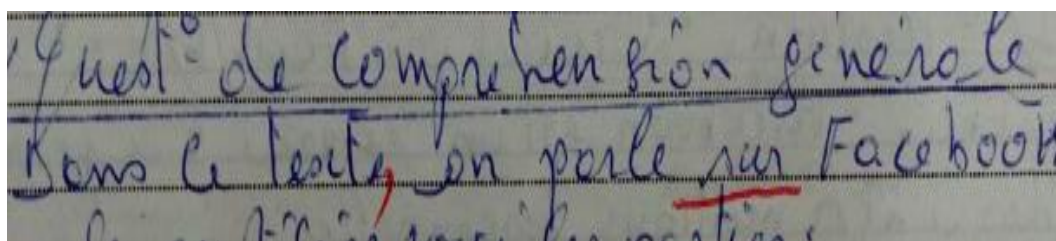 Quest° de compréhension générale
Dans ce texte, on parle sur Facebook